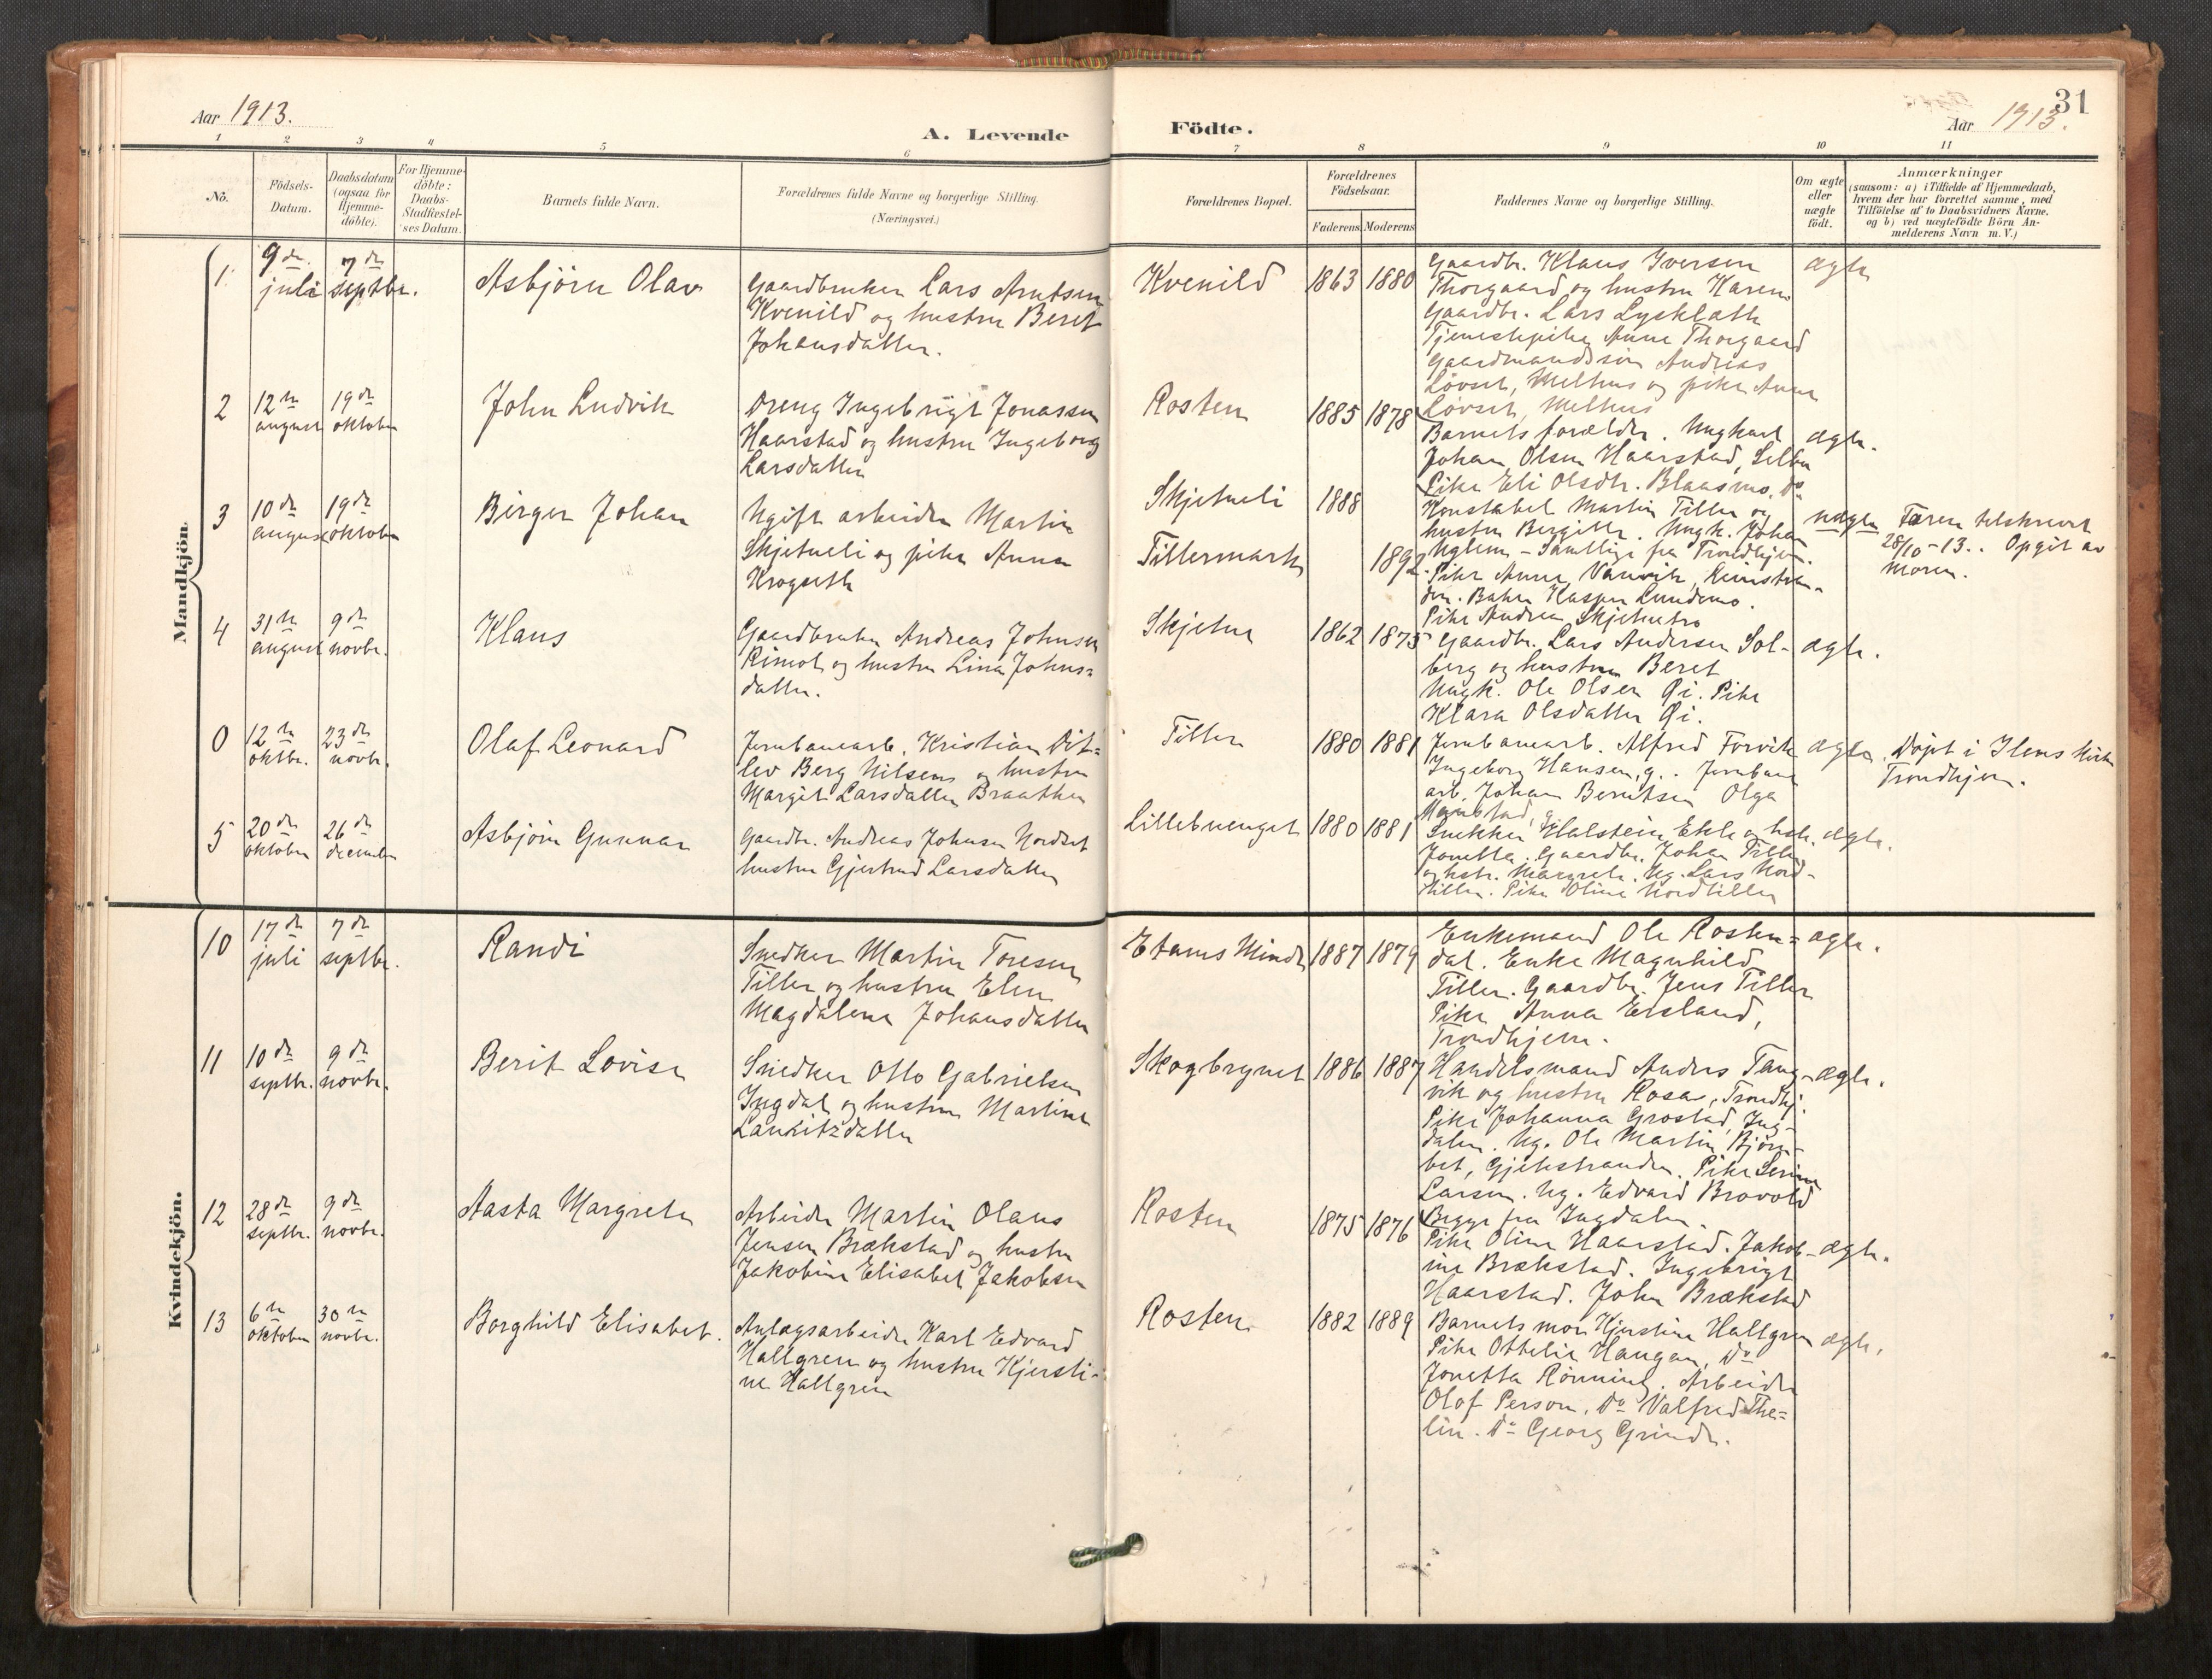 Aar 1913.
A. Levende
Födte.
31
Aar 1913.
1 2 3 4 5 6 7 8 9 10 11
No.
Födsels-
Datum.
Daabsdatum
(ogsaa for
Hjemme-
döbte).
For Hjemme-
döbte:
Daabs-
Stadfæstel-
ses Datum.
Barnets fulde Navn.
Forældrenes fulde Navne og borgerlige Stilling.
(Næringsvei.)
Forældrenes Bopæl.
Forældrenes
Födselsaar.
Faderens Moderens
Faddernes Navne og borgerlige Stilling.
Om ægte
eller
uægte
födt.
Anmærkninger
(saasom: a) i Tilfælde af Hjemmedaab,
hvem der har forrettet samme, med
Tilföielse af to Daabsvidners Navne.
og b) ved uægtefödte Börn An-
melderens Navn m. V.)
Mandkjön.
1.
9de
juli
7de
septbr.
Asbjörn Olav
Gaardbruker Lars Arntsen
Kvenild og hustru Beret
Johansdatter.
Kvenild
1863 1880
Gaardbr. Klaus Iversen
Thorgaard og hustru Karen.
Gaardbr. Lars Lysklæth
Tjenestepike Anne Thorgaard
Gaardmandssön Andreas
Lövset, Melhus og pike Anne
Lövset, Melhus
ægte
2
12te
august
19de
oktober
John Ludvik
Dreng Ingebrigt Jonassen
Haarstad og hustru Ingeborg
Larsdatter
Rosten
1885 1878
Barnets forældre. Ungkarl
Johan Olsen Haarstad, Selbu
Pike Eli Olsdtr. Blaasmo, do
ægte.
3
10de
august
19de
oktober
Birger Johan
Ugift arbeider Martin
Skjetneli og pike Anna
Krogseth
Skjetneli
Tillermark
1888
1892
Konstabel Martin Tiller og
hustru Bergitte. Ungk. Johan
Uglem - Samtlige fra Trondhjem.
Pike Anna Vanvik, Reinstran-
den. Baker Kasper Lundemo.
Pike Andrea Skjetnetro
uægte
Faren tilskrevet
28/10-13. Opgit av
moren.
4
31te
august
9de
novbr.
Klaus
Gaardbruker Andreas Johnsen
Rimol og hustru Lina Johns-
datter.
Skjetne
1862 1875
Gaardbr. Lars Andersen Sol-
berg og hustru Beret
Ungk. Ole Olsen Øi. Pike
Klara Olsdatter Øi.
ægte.
0
12te
oktbr.
23de
novbr.
Olaf Leonard
Jernbanearb. Kristian Dit-
lev Berg Nilsens og hustru
Margit Larsdatter Braathen
Tiller
1880 1881
Jernbanearb. Alfred Forvik
Ingeborg Hansen, g. Jernbane
arb. Johan Berntsen Olga
ægte.
Döpt i Ilens kirke
Trondhjem.
5
20de
oktober
26de
december
Asbjörn Gunnar
Gaardbr. Andreas Johnsen Nordset
hustru Gjertrud Larsdatter
Lillebuenget
1880 1881
Snekker Halstein Ekle og hstr.
Jonetta. Gaardbr. Johan Tiller
og hstr. Margrete. Ug. Lars Nord-
tiller. Pike Oline Nordtiller
ægte.
Kvindekjön.
10
17de
juli
7de
septbr.
Randi
Snedker Martin Toresen
Tiller og hustru Elen
Magdalena Johansdatter
Etams Minde
1887 1879
Enkemand Ole Rosten-
dal. Enke Magnhild
Tiller. Gaardbr. Jens Tiller
Pike Anna Ersland,
Trondhjem.
ægte.
11
10de
septbr.
9de
novbr.
Berit Lovise
Snedker Otto Gabrielsen
Ingdal og hustru Martine
Lauritzdatter
Skogbrynet
1886 1887
Handelsmand Anders Tang-
vik og hustru Rosa, Trondhj.
Pike Johanna Grostad, Ing-
dalen. Ug. Ole Martin Bjørn-
bet, Gjetstranden. Pike Serine
Larsen. Ug. Edvard Brovold
Begge fra Ingdalen.
ægte.
12
28de
septbr.
9de
novbr.
Aasta Margrete
Arbeider Martin Olaus
Jensen Brækstad og hustru
Jakobine Elisabet Jakobsen
Rosten
1875 1876
Pike Oline Haarstad. Jakob-
ine Brækstad. Ingebrigt
Haarstad. John Brækstad
ægte.
13
6te
oktober
30te
novbr.
Borghild Elisabet.
Anlægsarbeider Karl Edvard
Hallgren og hustru Kjersti-
ne Hallgren
Rosten
1882 1889
Barnets mor Kjerstine Hallgren
Pike Ottelie Haugan, do
Jonetta Rönning. Arbeider
Olof Person. do Valfred The-
lin. do Georg Grinde.
ægte.